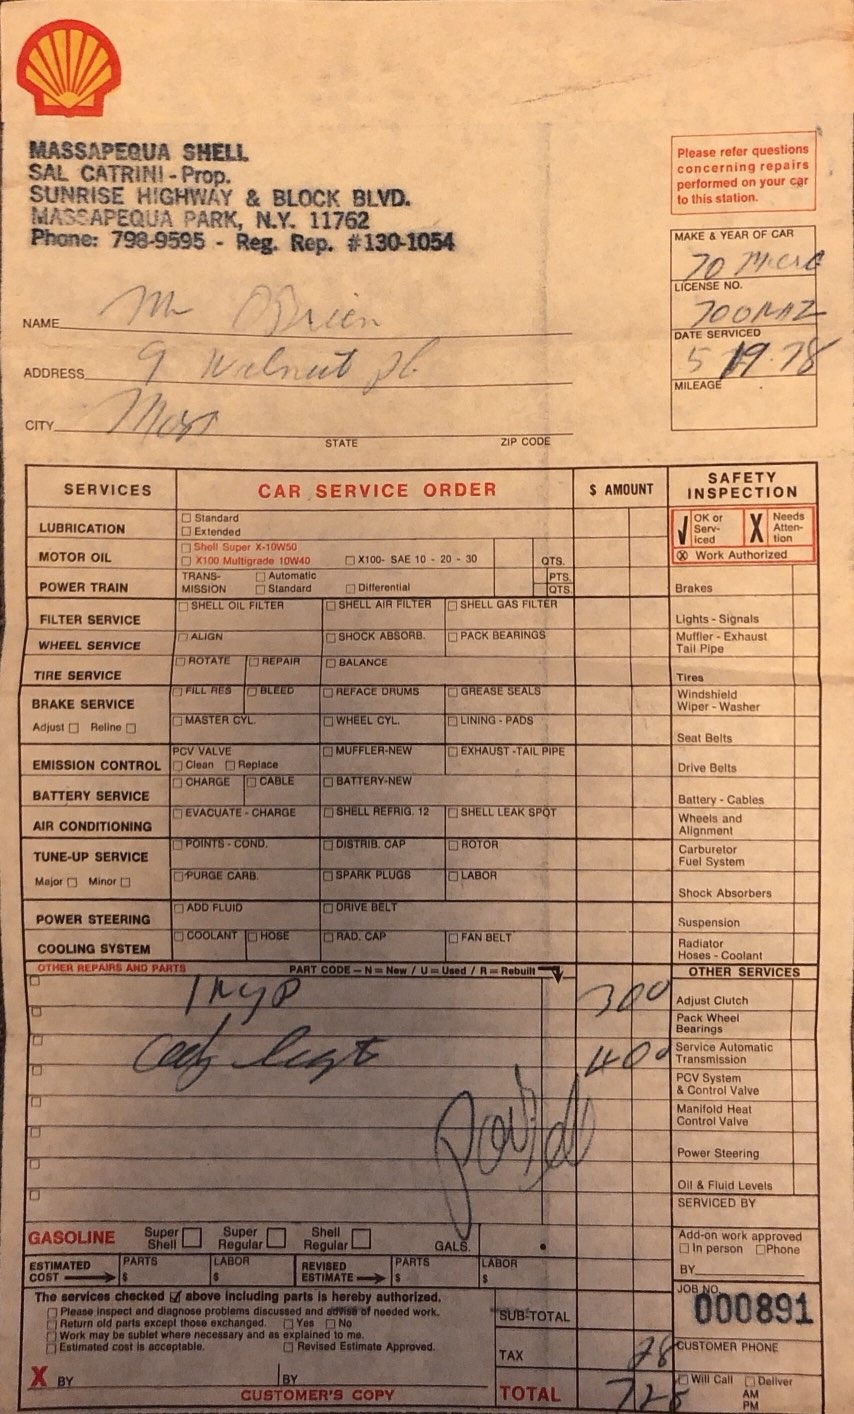 MASSAPEQUA SHELL
SAL CATRINI - Prop.
SUNRISE HIGHWAY & BLOCK BLVD.
MASSAPEQUA PARK, N.Y. 11762
Phone: 798-9595 - Reg. Rep. #130-1054
Please refer questions
concerning repairs
performed on your car
to this station.
MAKE & YEAR OF CAR
70 Merc
LICENSE NO.
DATE SERVICED
5 19 78
MILEAGE
NAME Mr OBrien
ADDRESS 9 Walnut Pl
CITY Mass
STATE ZIP CODE
SERVICES CAR SERVICE ORDER $ AMOUNT SAFETY INSPECTION
OK or Serviced X Needs Attention
Work Authorized
LUBRICATION Standard
Extended
MOTOR OIL Shell Super X-10W50
X100 Multigrade 10W40 X100- SAE 10 - 20 - 30 QTS.
POWER TRAIN TRANSMISSION Automatic PTS.
Standard Differential QTS.
Brakes
FILTER SERVICE SHELL OIL FILTER SHELL AIR FILTER SHELL GAS FILTER Lights - Signals
WHEEL SERVICE ALIGN SHOCK ABSORB. PACK BEARINGS Muffler - Exhaust
Tail Pipe
TIRE SERVICE ROTATE REPAIR BALANCE Tires
BRAKE SERVICE FILL RES BLEED REFACE DRUMS GREASE SEALS Windshield
Wiper - Washer
Adjust Reline MASTER CYL. WHEEL CYL. LINING - PADS Seat Belts
EMISSION CONTROL PCV VALVE MUFFLER-NEW EXHAUST -TAIL PIPE Drive Belts
Clean Replace
BATTERY SERVICE CHARGE CABLE BATTERY-NEW Battery - Cables
AIR CONDITIONING EVACUATE - CHARGE SHELL REFRIG. 12 SHELL LEAK SPOT Wheels and
Alignment
TUNE-UP SERVICE POINTS - COND. DISTRIB. CAP ROTOR Carburetor
Fuel System
Major Minor PURGE CARB. SPARK PLUGS LABOR Shock Absorbers
POWER STEERING ADD FLUID DRIVE BELT Suspension
COOLING SYSTEM COOLANT HOSE RAD. CAP FAN BELT Radiator
Hoses - Coolant
OTHER REPAIRS AND PARTS PART CODE - N = New / U = Used / R = Rebuilt OTHER SERVICES
Insp 300 Adjust Clutch
Pack Wheel
Bearings
400 Service Automatic
Transmission
PCV System
& Control Valve
Paid
Manifold Heat
Control Valve
Power Steering
Oil & Fluid Levels
SERVICED BY
GASOLINE Super Shell Super Regular Shell Regular GALS.
Add-on work approved
In person Phone
BY
ESTIMATED COST PARTS $ LABOR $ REVISED ESTIMATE PARTS $ LABOR $
The services checked above including parts is hereby authorized.
Please inspect and diagnose problems discussed and advise of needed work.
Return old parts except those exchanged. Yes No
Work may be sublet where necessary and as explained to me.
Estimated cost is acceptable. Revised Estimate Approved.
JOB NO.
000891
SUB-TOTAL
TAX 28
CUSTOMER PHONE
X BY BY
CUSTOMER'S COPY
TOTAL 728
Will Call Deliver
AM
PM